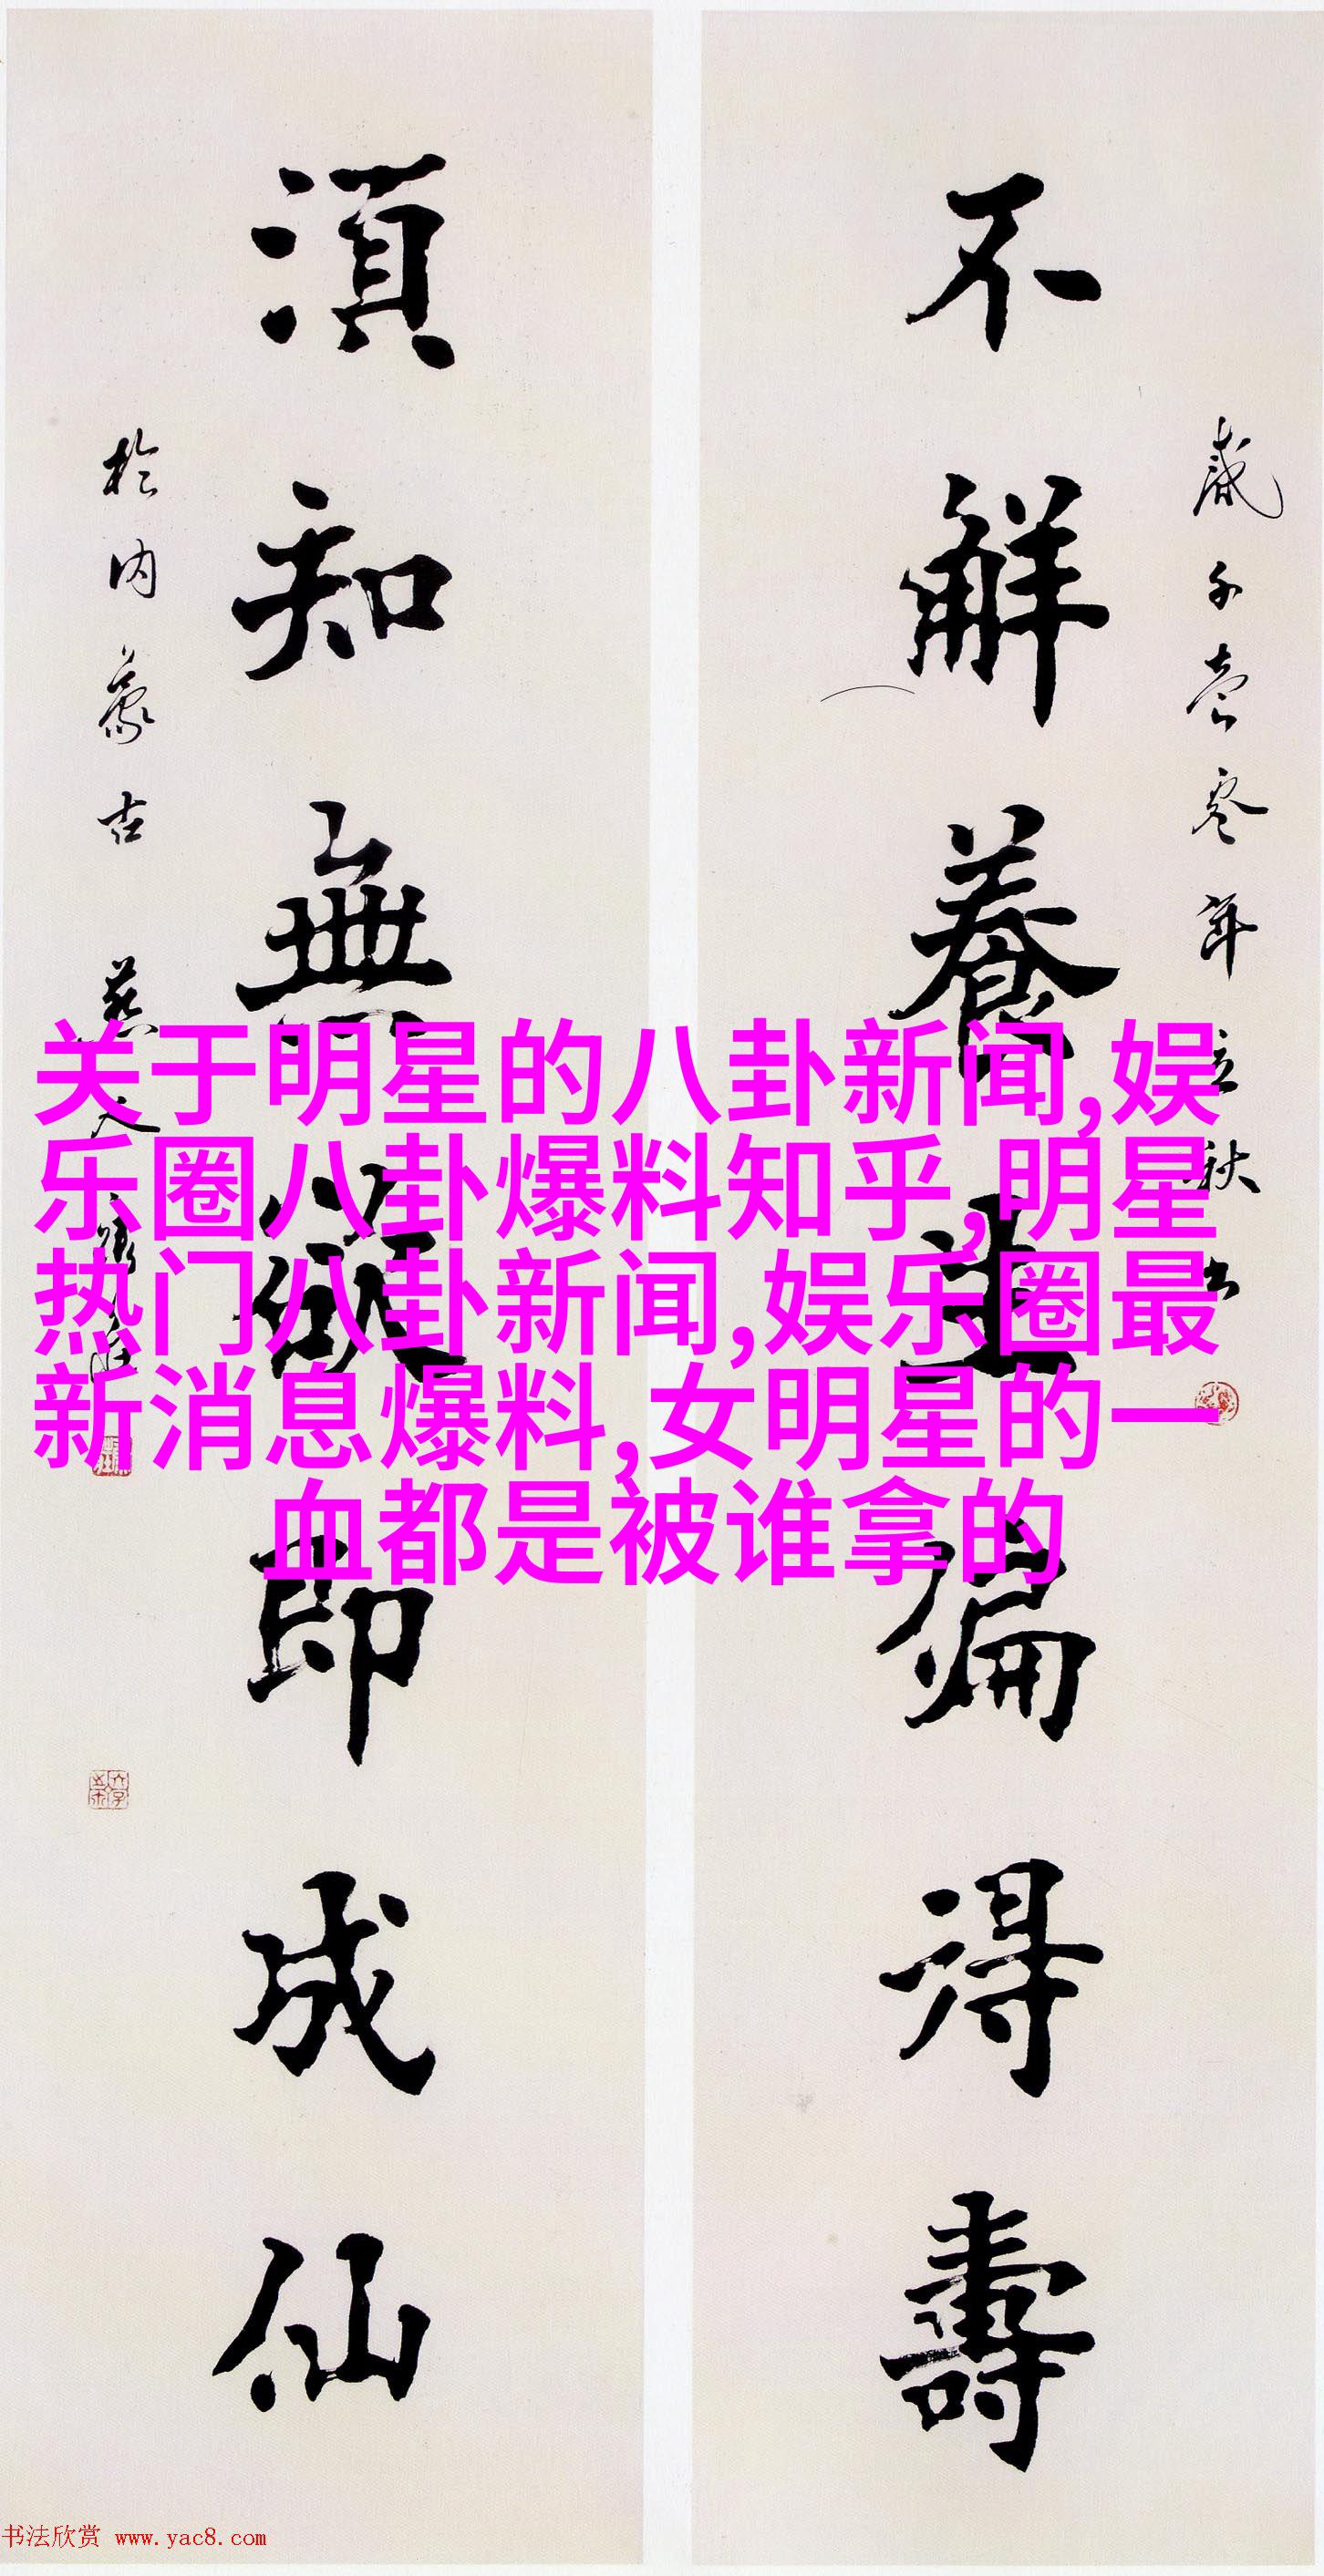 不解養生偏得壽
湏知無欲即成仙
於内蒙古
关于明星的八卦新闻,娱
乐圈八卦爆料知乎,明星
热门八卦新闻,娱乐圈最
新消息爆料,女明星的一
血都是被谁拿的
书法欣赏 www.yac8.com